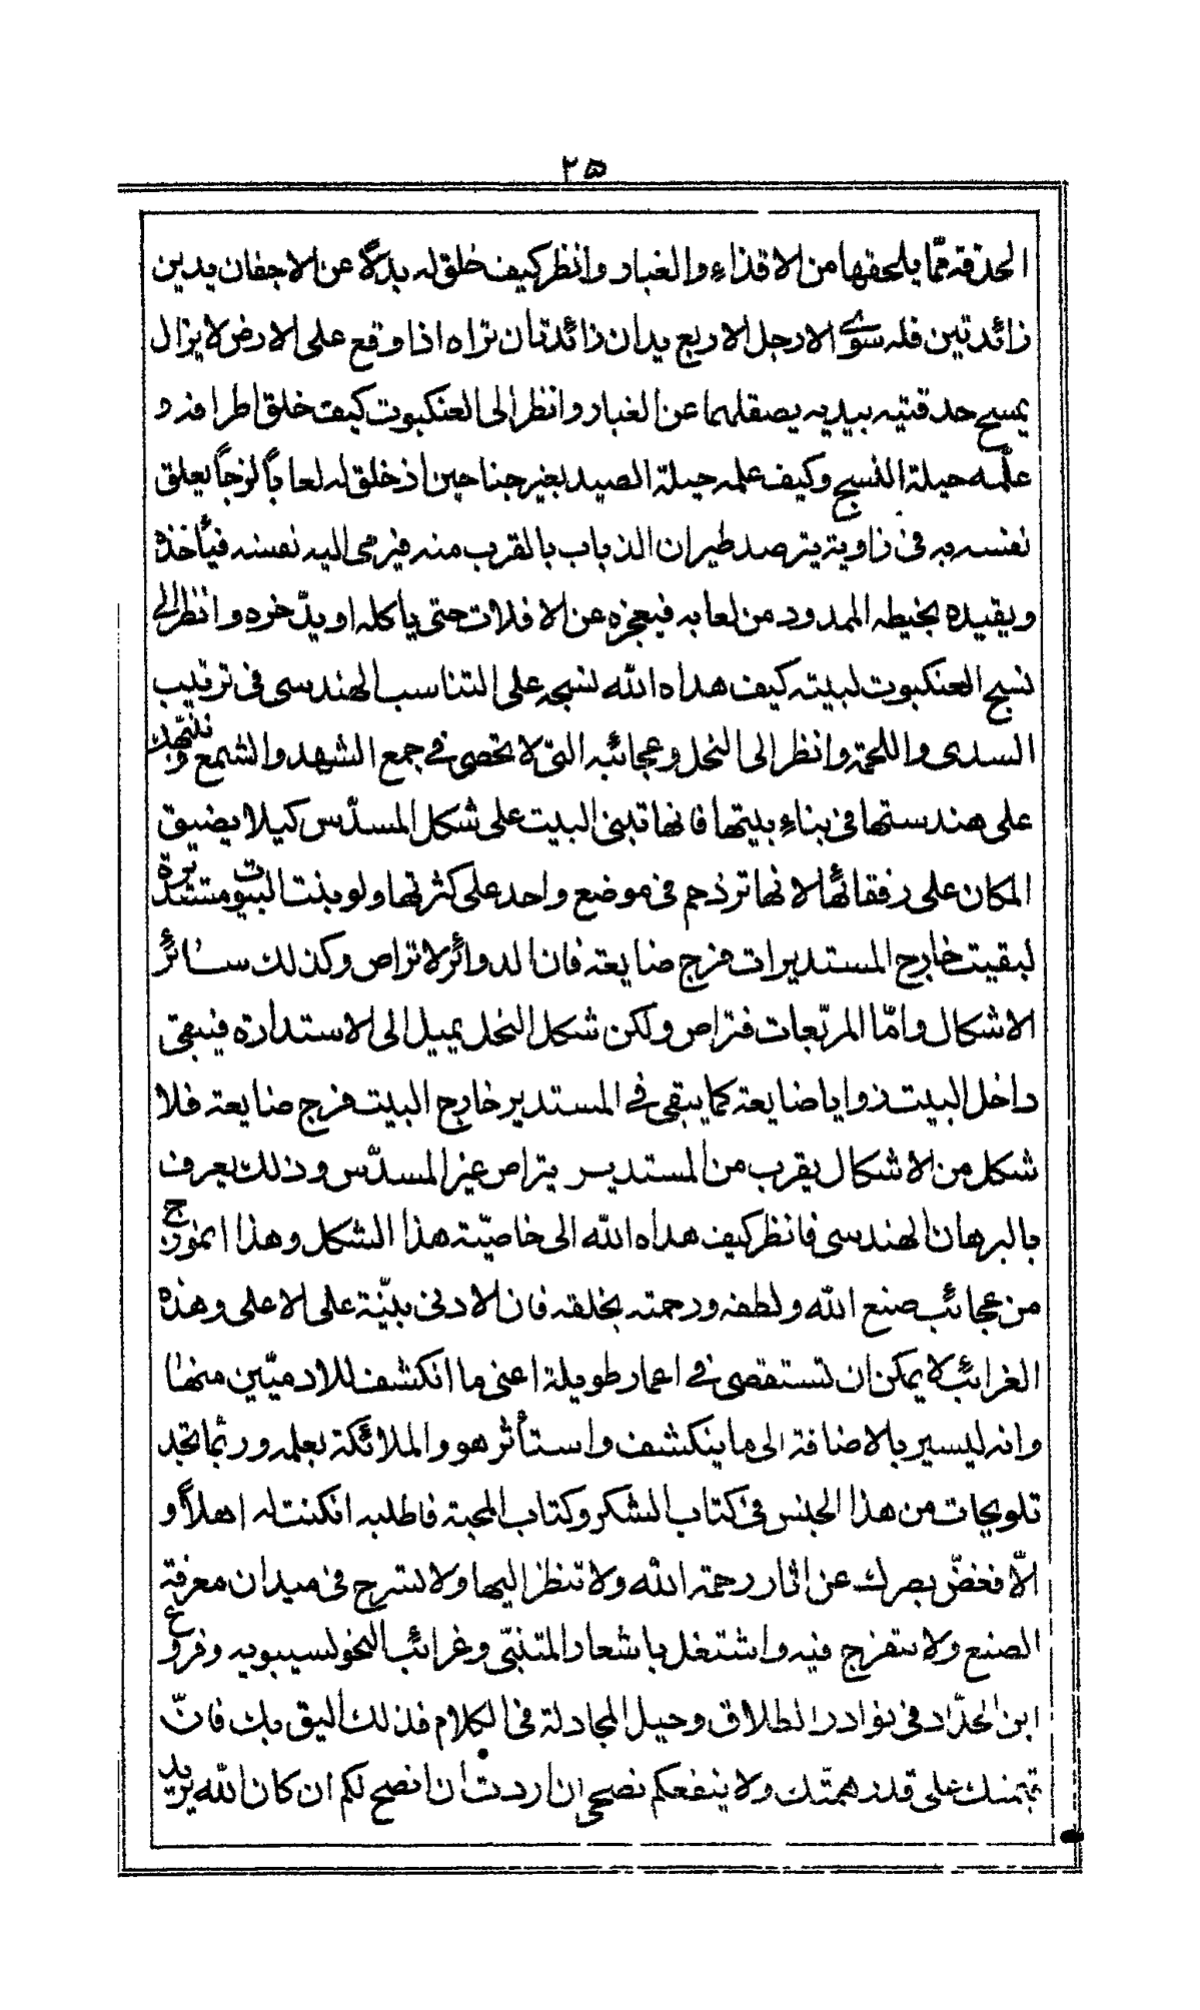 ٢٥
الحدقة ممّا يلحفها من الاقذاء والغبار وانظر كيف خلق له بدلاً عن الاجفان يدين
زائدتين فله سوى الارجل الاربع يدان زائدتان تراه اذا وقع على الارض لا يزال
يمسح حدقتيه بيديه يصقلهما عن الغبار وانظر الى العنكبوت كيف خلق اطرافه و
علّمه حيلة النسج وكيف علمه حيلة الصيد بغير جناحين اذ خلق له لعاباً لزجاً يعلق
نفسه به فى زاوية يترصد طيران الذباب بالقرب منه فيرمى اليه نفسه فيأخذه
ويقيده بخيطه الممدود من لعابه فيعجزه عن الافلات حتى ياكله او يدّخره وانظر الى
نسج العنكبوت لبيته كيف هداه الله نسجه على التناسب الهندسى فى ترتيب
السدى واللحمة وانظر الى النحل وعجائبه التى لا تحصى فى جمع الشهد والشمع وننبّهك
على هندستها فى بناء بيتها فانها تبنى البيت على شكل المسدّس كيلا يضيق
المكان على رفقائها لانها تزدحم فى موضع واحد على كثرتها ولو بنت البيوت مستديرة
لبقيت خارج المستديرات فرج ضايعة فان الدوائر لا تراص وكذلك سائر
الاشكال وامّا المربّعات فتراص ولكن شكل النحل يميل الى الاستدارة فيبقى
داخل البيت زوايا ضايعة كما يبقى فى المستدير خارج البيت فرج ضايعة فلا
شكل من الاشكال يقرب من المستدير يتراص غير المسدّس وذلك يعرف
بالبرهان الهندسى فانظر كيف هداه الله الى خاصيّة هذا الشكل وهذا انموذج
من عجائب صنع الله ولطفه ورحمته بخلقه فان الادنى بيّنة على الاعلى وهذه
الغرائب لا يمكن ان تستقصى فى اعمار طويلة اعنى ما انكشف للادميّين منها
وانه ليسير بالاضافة الى ما ينكشف واستأثر هو والملائكة بعلمه وربّما تجد
تلويحات من هذا الجنس فى كتاب الشكر وكتاب المحبة فاطلبه ان كنت له اهلاً و
الّا فغضّ بصرك عن اثار رحمة الله ولا تنظر اليها ولا تسرح فى ميدان معرفة
الصنع ولا تتفرج فيه واشتغل باشعار المتنبّى وغرائب النحو لسيبويه وفروع
ابن الحدّاد فى نوادر الطلاق وحيل المجادلة فى الكلام فذلك اليق بك فانّ
قيمتك على قدر همّتك ولا ينفعكم نصحى ان اردت ان انصح لكم ان كان الله يريد